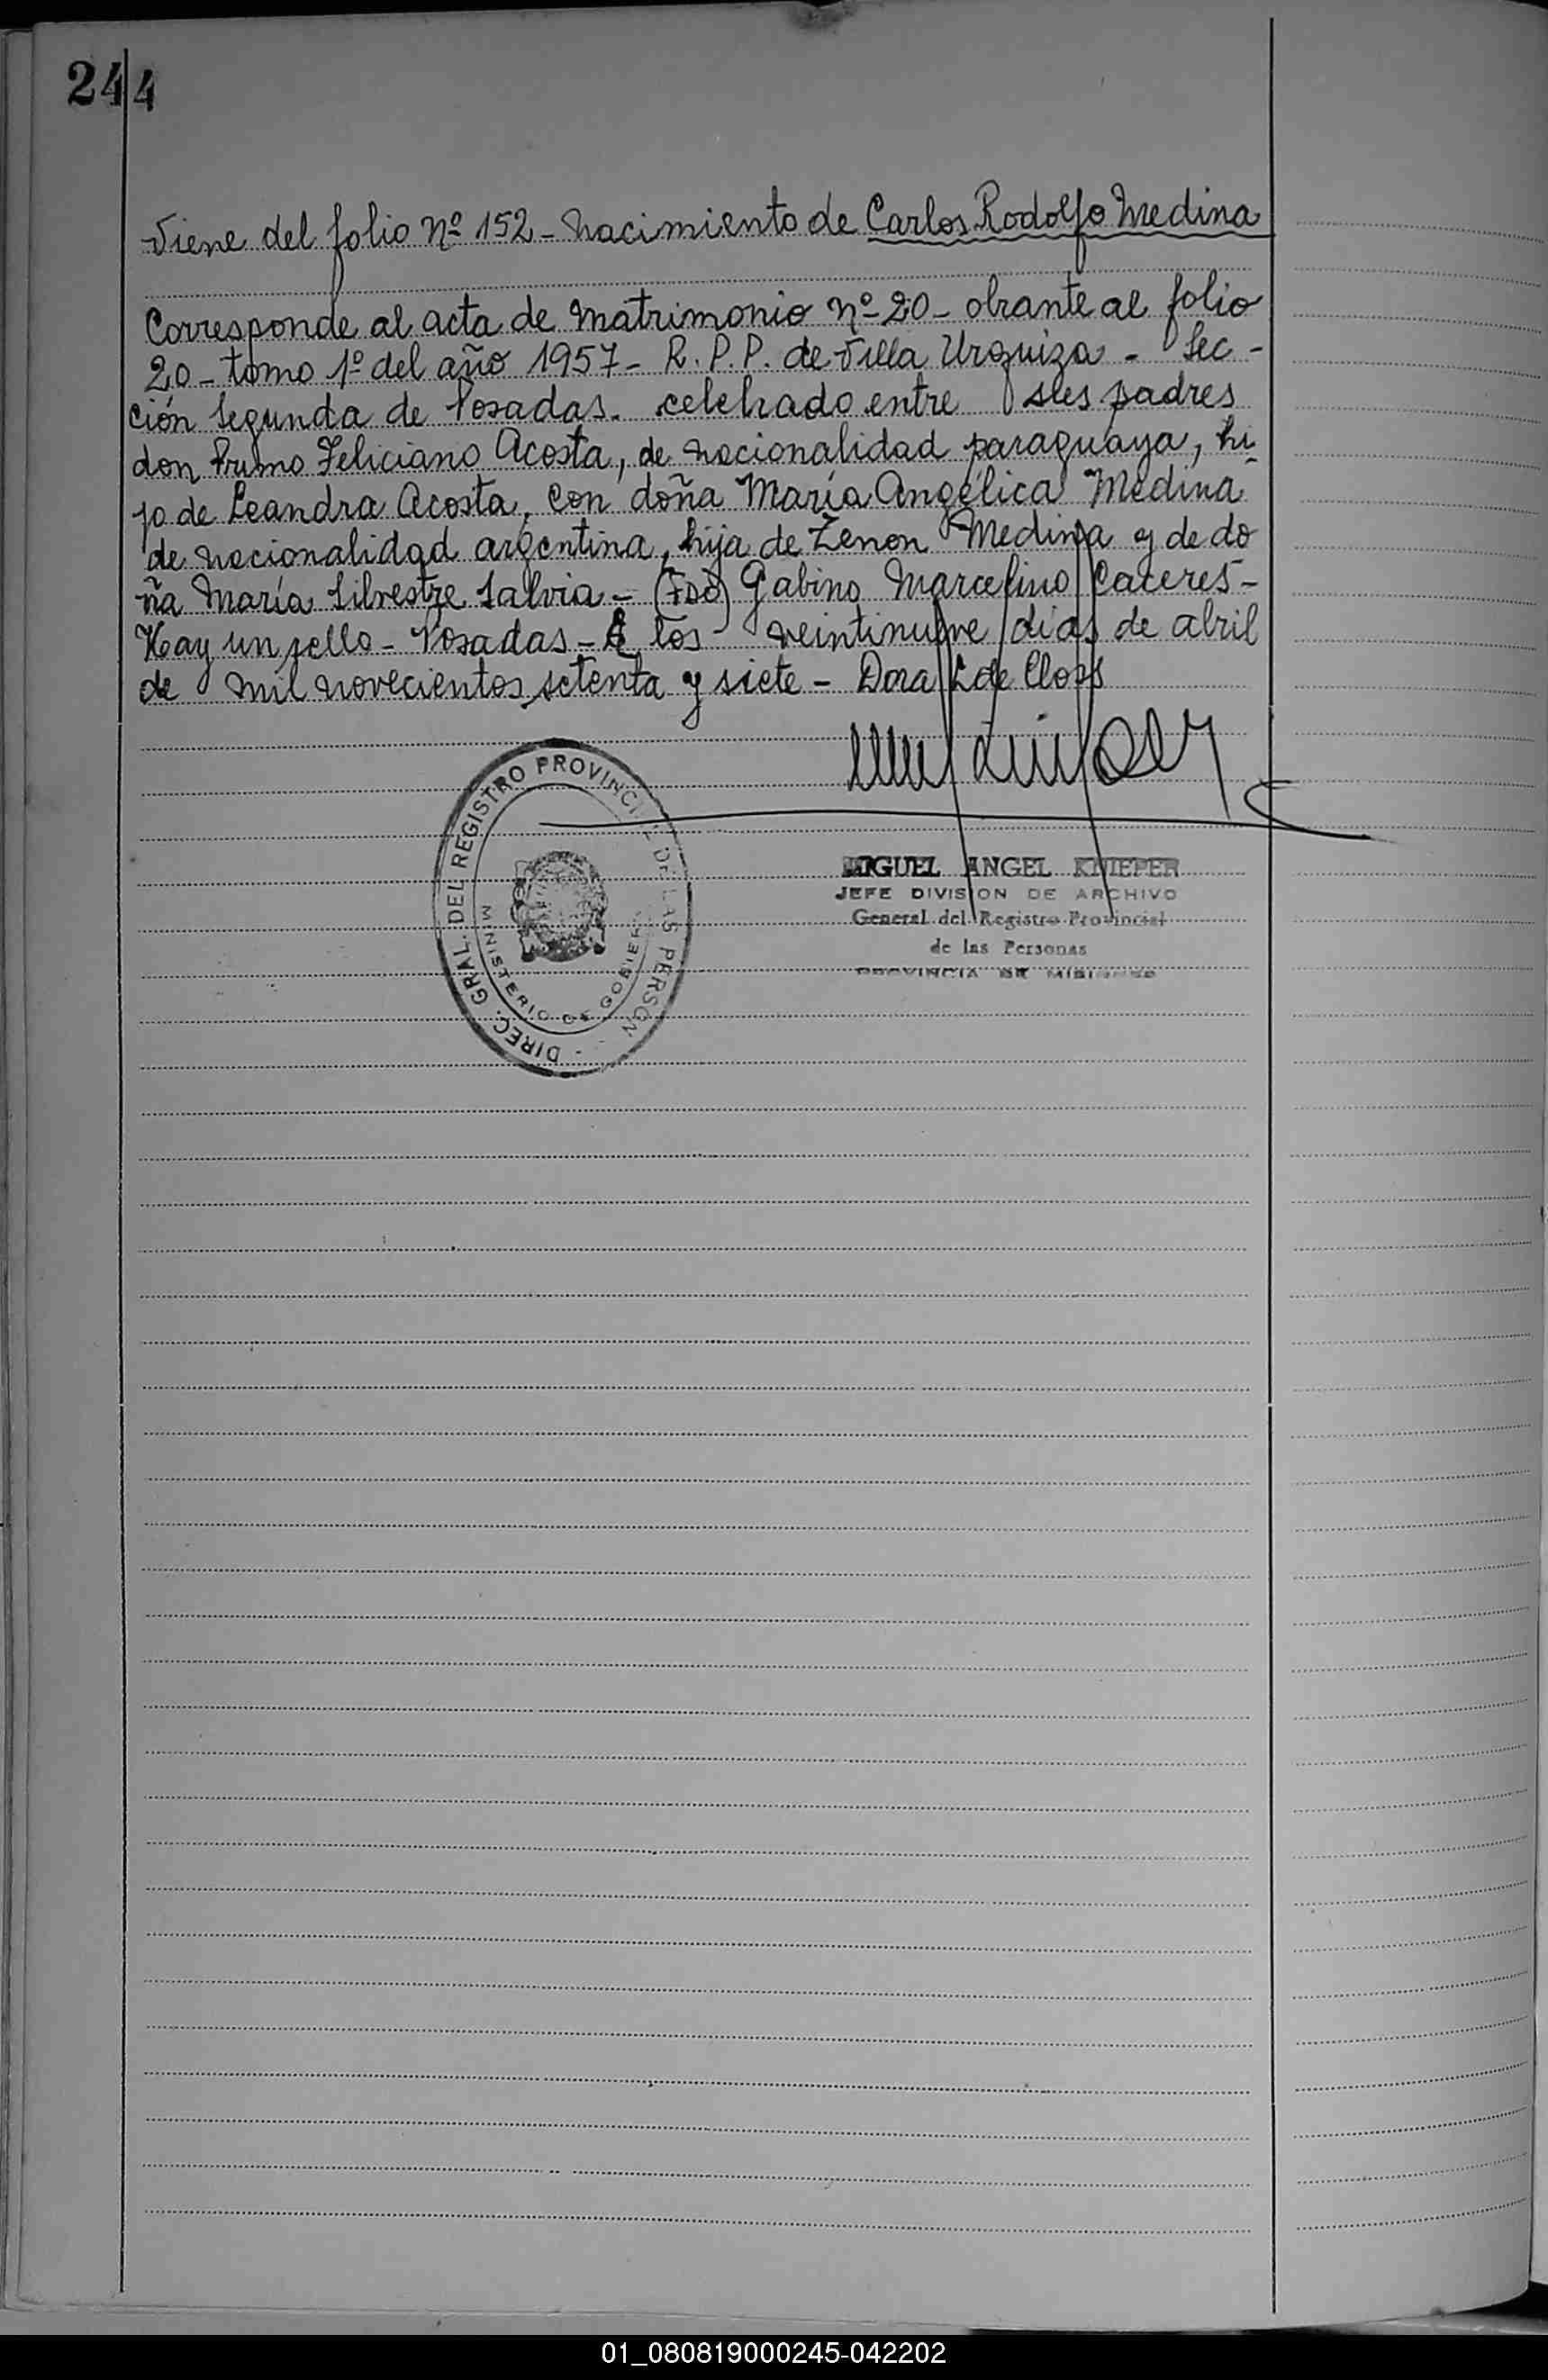 244
Viene del folio Nº 152 - Nacimiento de Carlos Rodolfo Medina
Corresponde al acta de Matrimonio Nº 20 - obrante al folio
20 - tomo 1º del año 1957 - R. P. P. de Villa Urquiza - Sec -
ción Segunda de Posadas - celebrado entre sus padres
don Primo Feliciano Acosta, de nacionalidad paraguaya, hi-
jo de Leandra Acosta, con doña María Angélica Medina
de nacionalidad argentina, hija de Zenon Medina y de do
ña María Silvestre Salvia - (Fdo) Gabino Marcelino Caceres -
Hay un sello - Posadas - A los veintinueve días de abril
de mil novecientos setenta y siete - Dora L de Closs
DIREC. GRAL. DEL REGISTRO PROVINCIAL DE LAS PERSON
MINISTERIO DE GOBIER
MIGUEL ANGEL KNIEPER
JEFE DIVISION DE ARCHIVO
General del Registro Provincial
de las Personas
PROVINCIA DE MISIONES
01_080819000245-042202